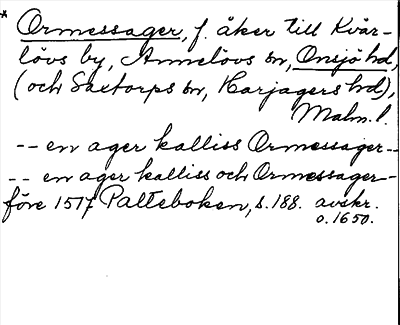 * Ormessager, f. åker till Kvär-
lövs by, Annelövs sn, Onsjö hd,
(och Saxtorps sn, Harjagers hd),
Malm. l.
-- en ager kalliss Ormessager --
-- en ager kalliss och Ormessager --
före 1517 Palteboken, s. 188. avskr.
o. 1650.